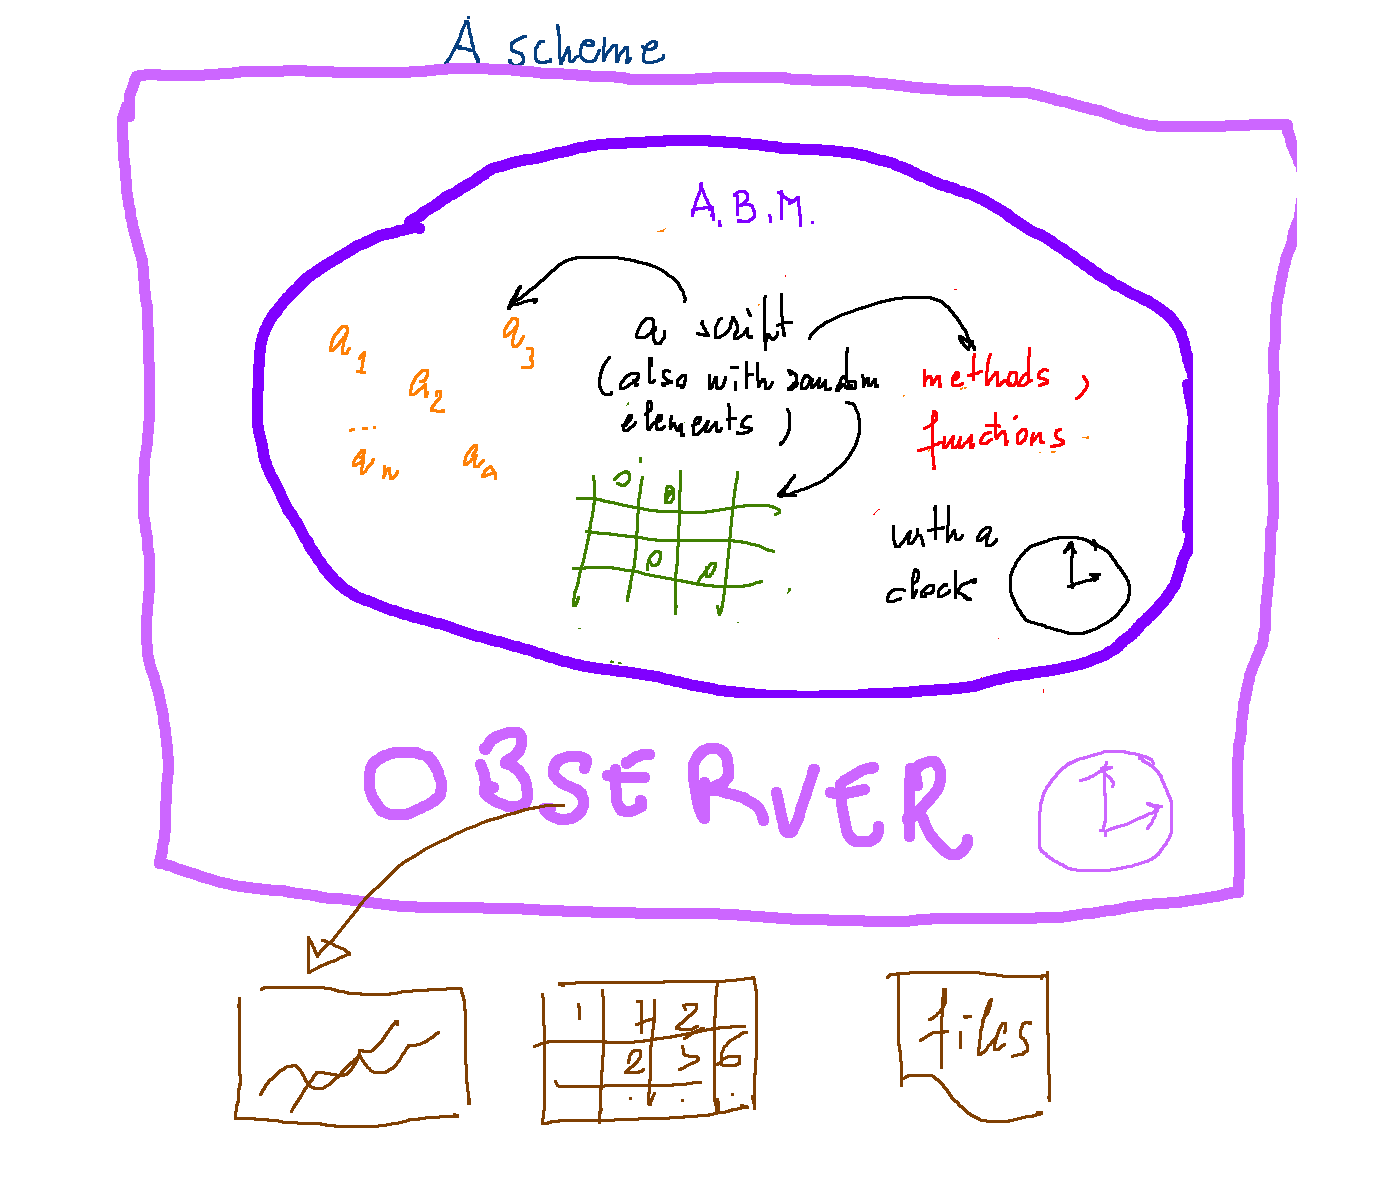 A scheme
A.B.M.
a script
(also with random
elements)
a1
a2
a3
...
an
methods,
functions
with a
clock
OBSERVER
1 7 2
2 5 6
. . .
files